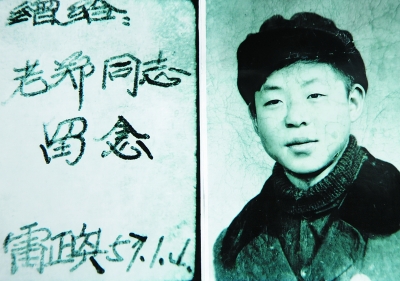 赠给:
老郑同志
留念
雷正兴57.1.